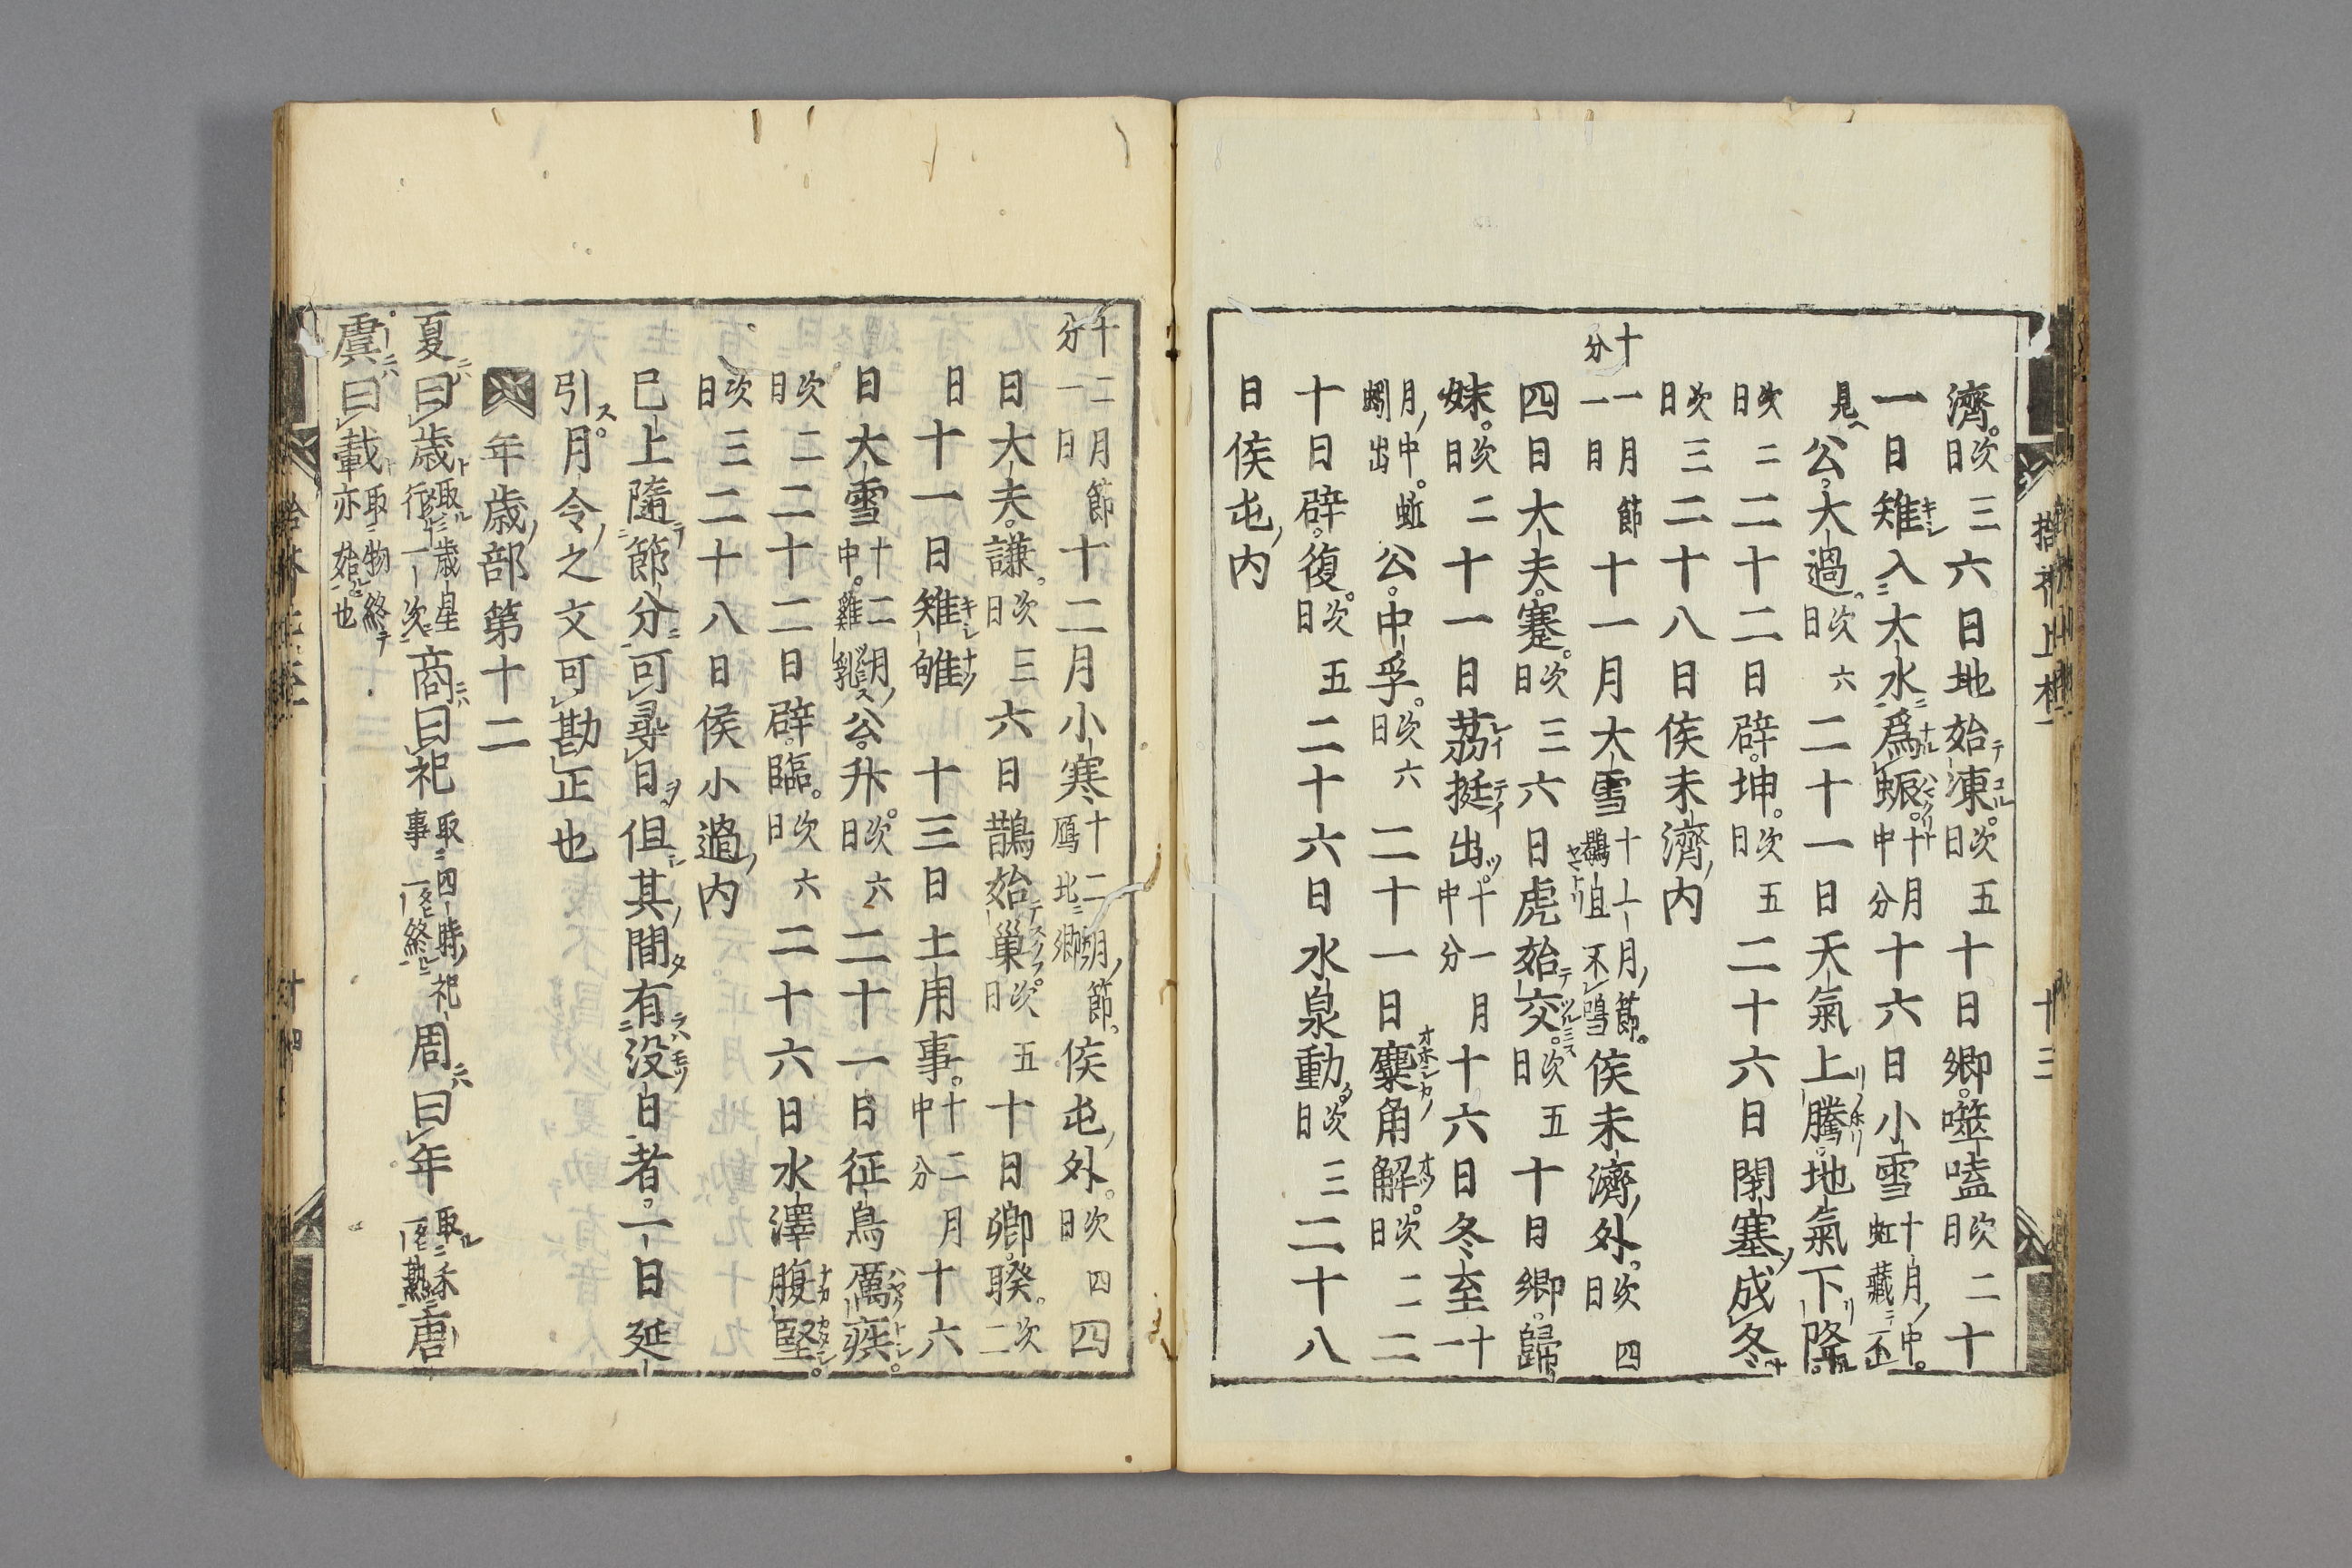 濟次日三六日地始凍次日五十日卿噬嗑次日二十
一日雉入大水爲蜃十月中分十六日小雪十月中虹藏不
見公大過次日六二十一日天氣上騰地氣下降
次日二二十二日辟坤次日五二十六日閉塞成冬
次日三二十八日侯未濟内
十一月節分一日十一月大雪十一月節鶡旦不鳴侯未濟外次日四
四日大夫蹇次日三六日虎始交次日五十日卿歸
妹次日二十一日荔挺出十一月中分十六日冬至十一
月中蚯蚓出公中孚次日六二十一日麋角解次日二二
十日辟復次日五二十六日水泉動次日三二十八
日侯屯内
十二月節分一日十二月小寒十二月節鴈北鄉侯屯外次日四四
日大夫謙次日三六日鵲始巢次日五十日卿睽次二
日十一日雉雊十三日土用事十二月中分十六
日大雪十二月中雞乳公升次日六二十一日征鳥厲疾
次日二二十二日辟臨次日六二十六日水澤腹堅
次日三二十八日侯小過内
已上隨節分可尋日但其間有没日者一日延
引月令之文可勘正也
年歳部第十二
夏曰歳取歳星行一次商曰祀取四時祀事一終周曰年取禾一熟唐
虞曰載取物終亦始也